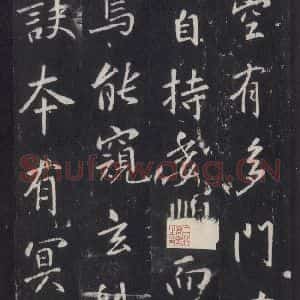 空有多門
自持而
焉能窺玄
訣本有冥
Shufawang.CN